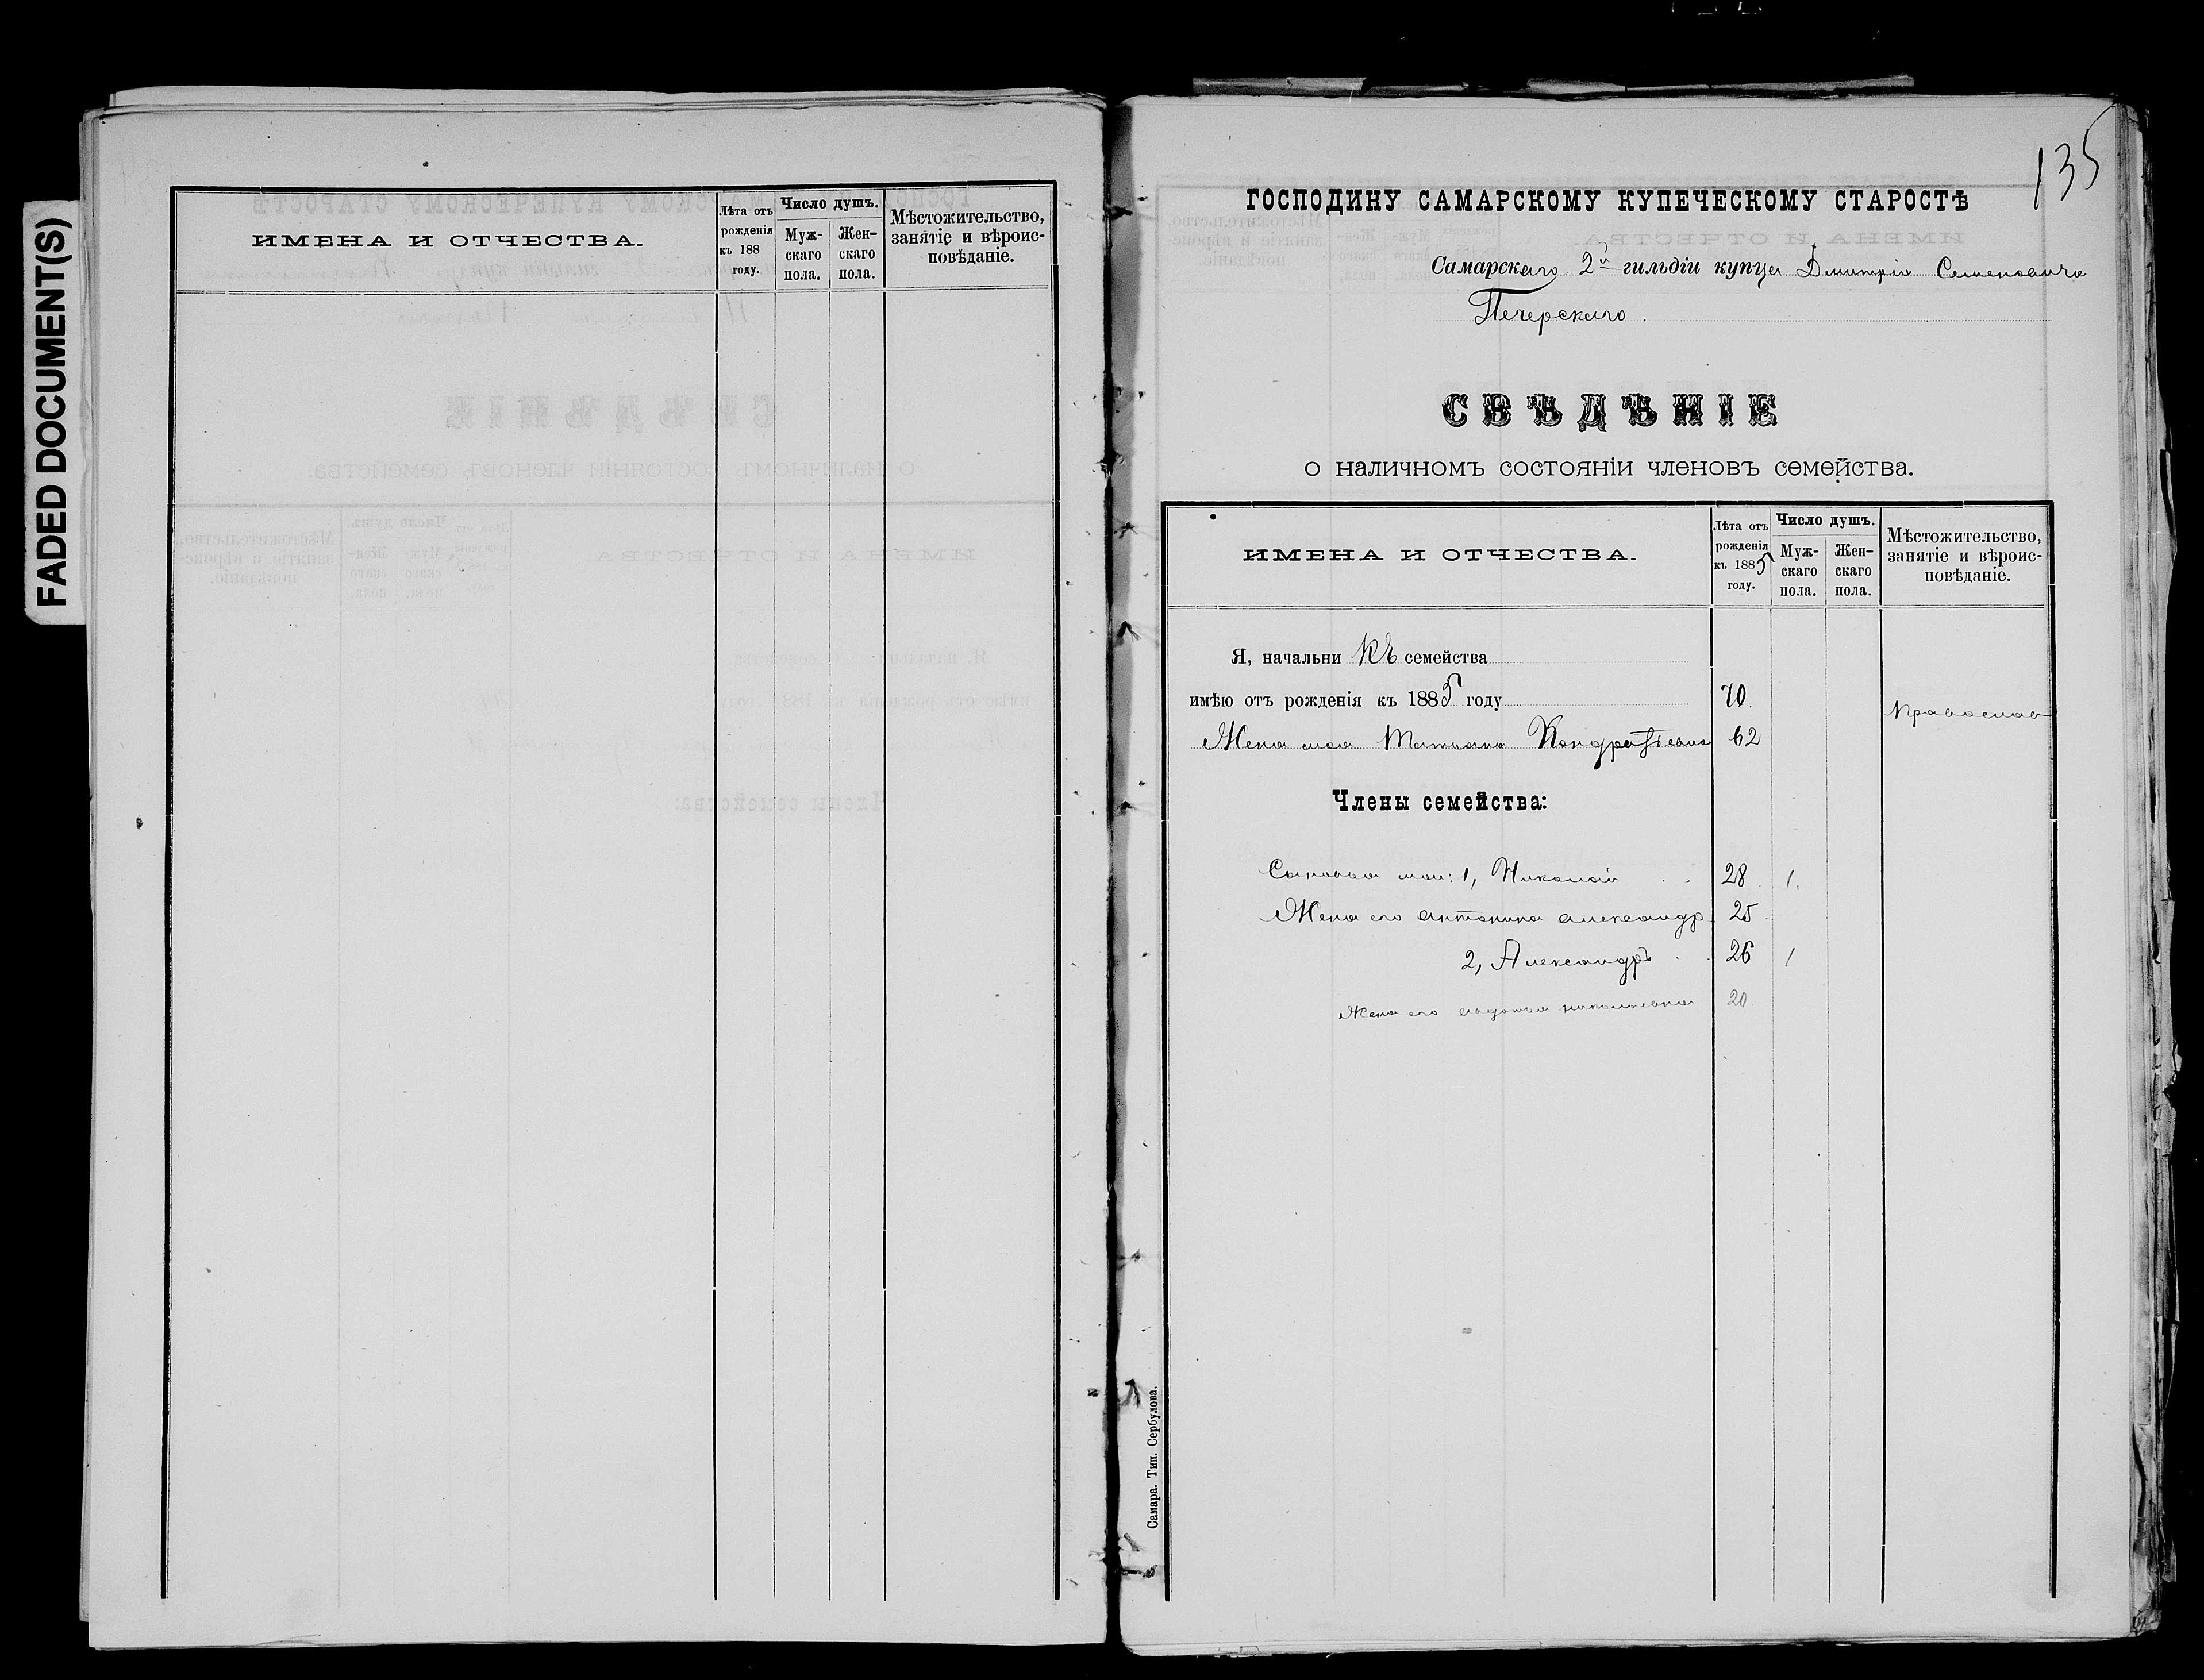 FADED DOCUMENT(S)
ИМЕНА И ОТЧЕСТВА.
Лѣта отъ рожденія къ 188 году.
Число душъ.
Мужскаго пола.
Женскаго пола.
Мѣстожительство, занятіе и вѣроисповѣданіе.
135
ГОСПОДИНУ САМАРСКОМУ КУПЕЧЕСКОМУ СТАРОСТѢ
Самарскаго 2й гильдіи купца Дмитрія Семеновича
Печерскаго.
СВѢДѢНІЕ
о наличномъ состояніи членовъ семейства.
ИМЕНА И ОТЧЕСТВА.
Лѣта отъ рожденія къ 1885 году.
Число душъ.
Мужскаго пола.
Женскаго пола.
Мѣстожительство, занятіе и вѣроисповѣданіе.
Я, начальникъ семейства
имѣю отъ рожденія къ 1885 году 70.
Православ
Жена моя Татьяна Кондратьевна 62
Члены семейства:
Сыновья мои: 1, Николай 28 1.
Жена его Антонина Александр 25
2, Александръ 26 1
Жена его николаевна 20.
Самара. Тип. Сербулова.